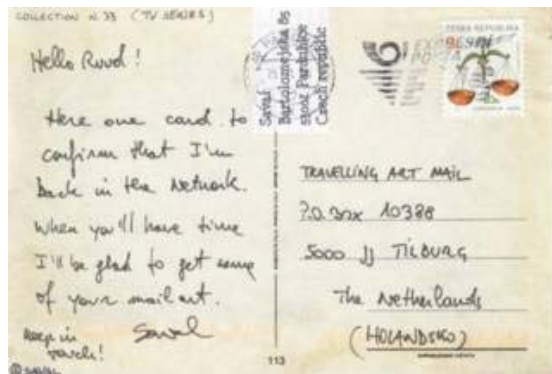 COLLECTION N. 33 (TV SERIES)
Hello Ruud!
Here one card to
confirm that I'm
back in the Network.
When you'll have time
I'll be glad to get some
of your mail art.
Keep in
touch!
Saval
© SAVAL
Saval
Bartolomejska 85
Pardubice
Czech republic
ČESKÁ REPUBLIKA
113
TRAVELLING ART MAIL
P.O. BOX 10388
5000 JJ TILBURG
The Netherlands
(HOLANDSKO)